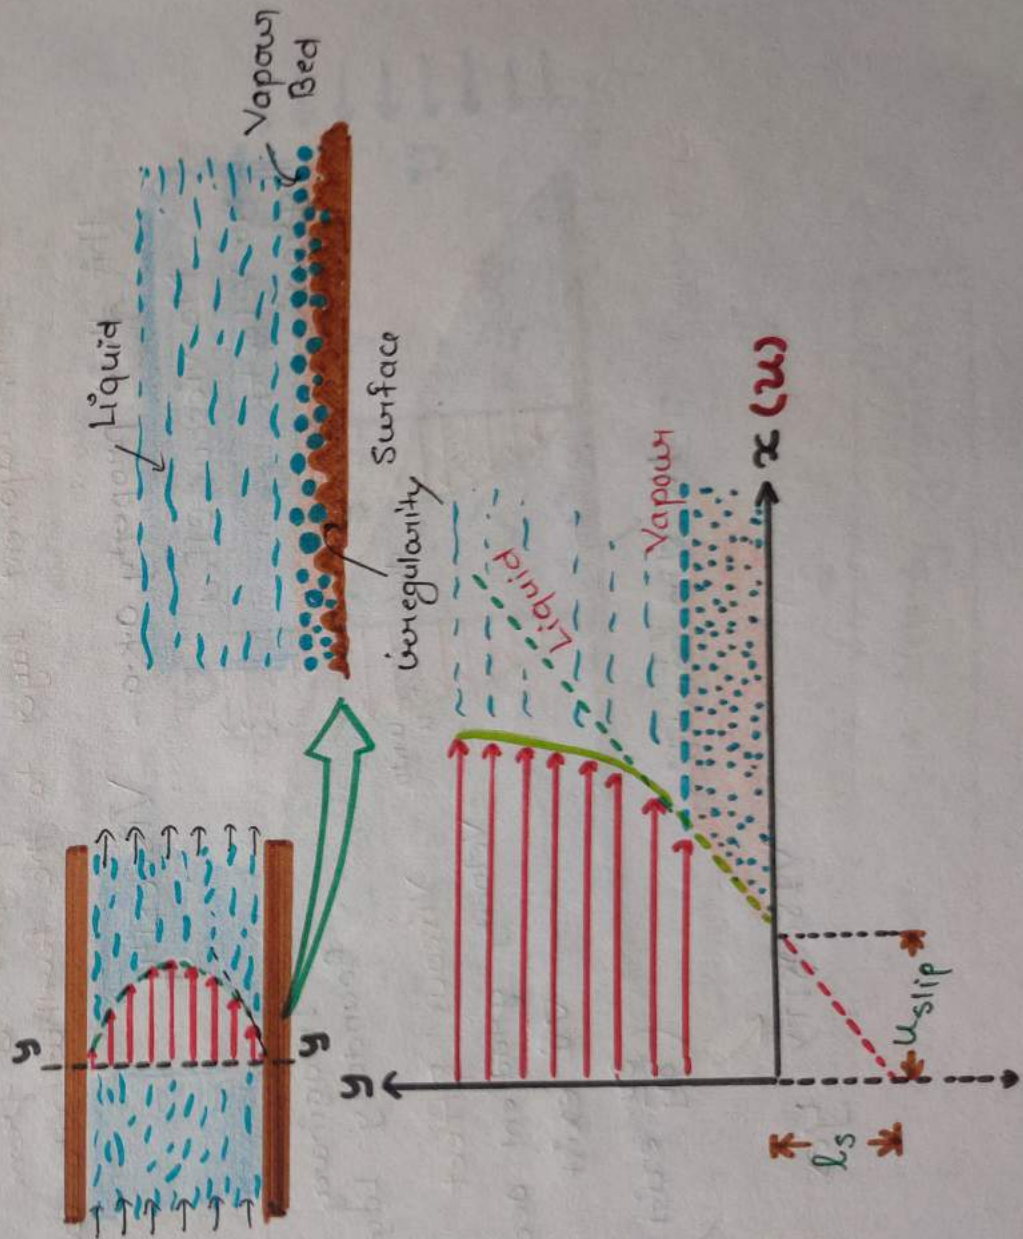 y
y
Liquid
Vapour
Bed
Surface
irregularity
y
Liquid
Vapour
x (u)
ls
uslip